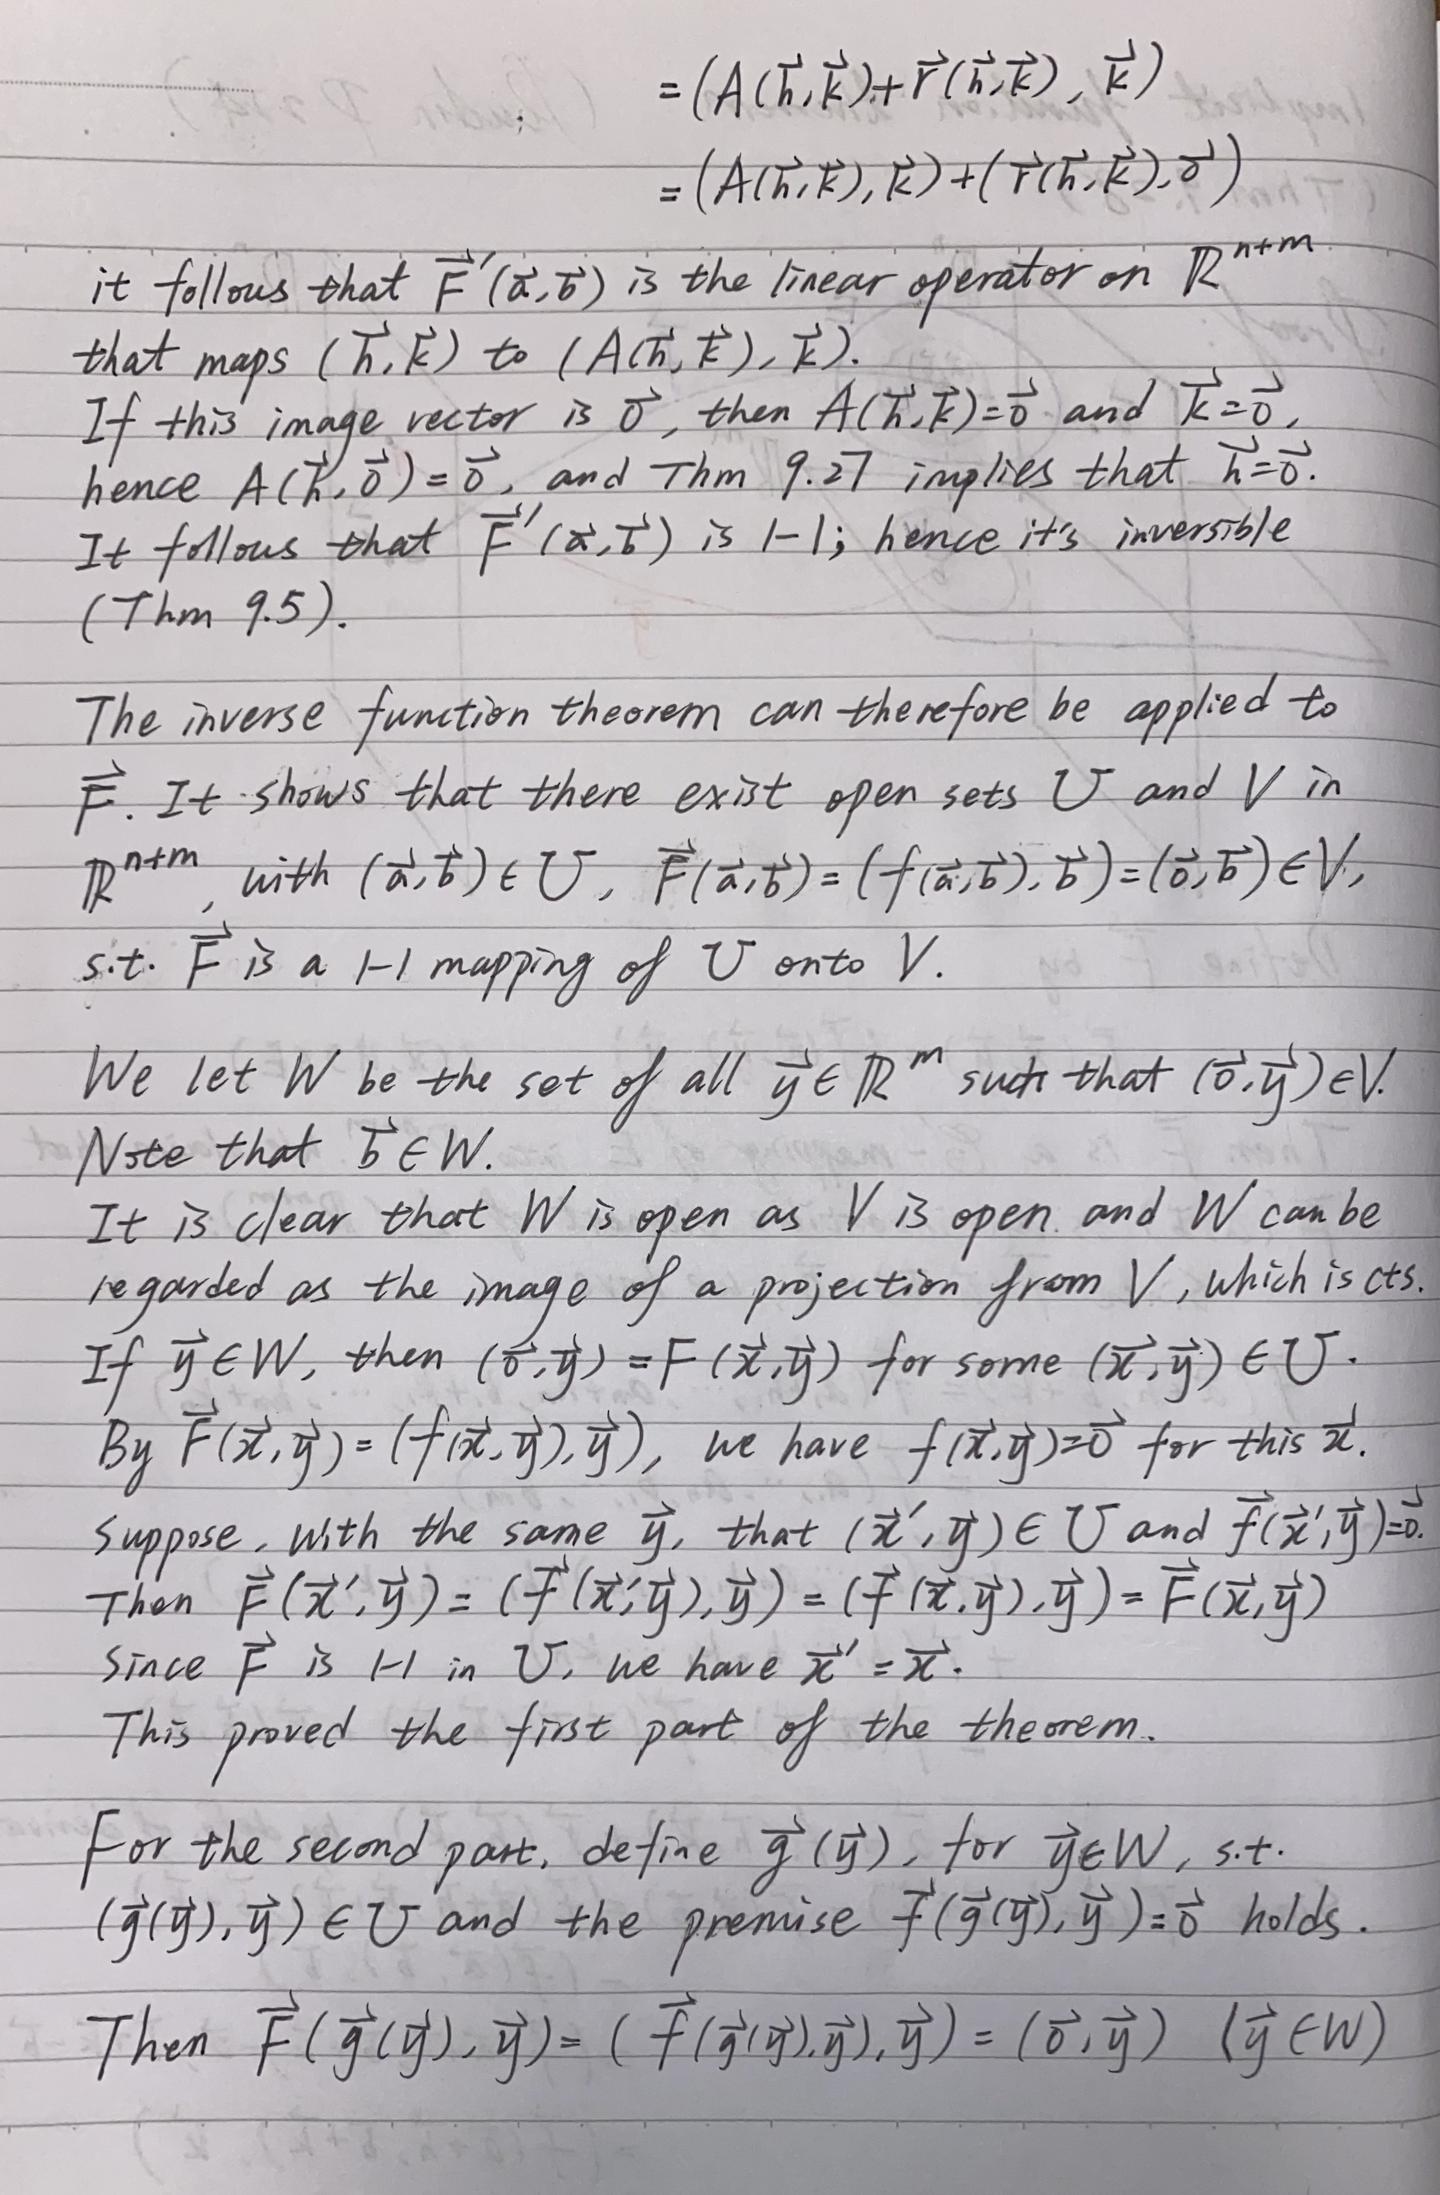 = (A(h⃗, k⃗) + r⃗(h⃗, k⃗), k⃗)
= (A(h⃗, k⃗), k⃗) + (r⃗(h⃗, k⃗), 0⃗)
it follows that F⃗'(a⃗, b⃗) is the linear operator on ℝⁿ⁺ᵐ
that maps (h⃗, k⃗) to (A(h⃗, k⃗), k⃗).
If this image vector is 0⃗, then A(h⃗, k⃗)=0⃗ and k⃗=0⃗,
hence A(h⃗, 0⃗) = 0⃗, and Thm 9.27 implies that h⃗=0⃗.
It follows that F⃗'(a⃗, b⃗) is 1-1; hence it's inversible
(Thm 9.5).
The inverse function theorem can therefore be applied to
F⃗. It shows that there exist open sets U and V in
ℝⁿ⁺ᵐ, with (a⃗, b⃗) ∈ U, F⃗(a⃗, b⃗) = (f(a⃗, b⃗), b⃗) = (0⃗, b⃗) ∈ V,
s.t. F⃗ is a 1-1 mapping of U onto V.
We let W be the set of all y⃗ ∈ ℝᵐ such that (0⃗, y⃗) ∈ V.
Note that b⃗ ∈ W.
It is clear that W is open as V is open and W can be
regarded as the image of a projection from V, which is cts.
If y⃗ ∈ W, then (0⃗, y⃗) = F(x⃗, y⃗) for some (x⃗, y⃗) ∈ U.
By F⃗(x⃗, y⃗) = (f(x⃗, y⃗), y⃗), we have f(x⃗, y⃗)=0⃗ for this x⃗.
Suppose, with the same y⃗, that (x⃗', y⃗) ∈ U and f⃗(x⃗', y⃗)=0⃗.
Then F⃗(x⃗', y⃗) = (f⃗(x⃗', y⃗), y⃗) = (f⃗(x⃗, y⃗), y⃗) = F⃗(x⃗, y⃗)
Since F⃗ is 1-1 in U, we have x⃗' = x⃗.
This proved the first part of the theorem.
For the second part, define g⃗(y⃗), for y⃗ ∈ W, s.t.
(g⃗(y⃗), y⃗) ∈ U and the premise f⃗(g⃗(y⃗), y⃗) = 0⃗ holds.
Then F⃗(g⃗(y⃗), y⃗) = (f⃗(g⃗(y⃗), y⃗), y⃗) = (0⃗, y⃗) (y⃗ ∈ W)